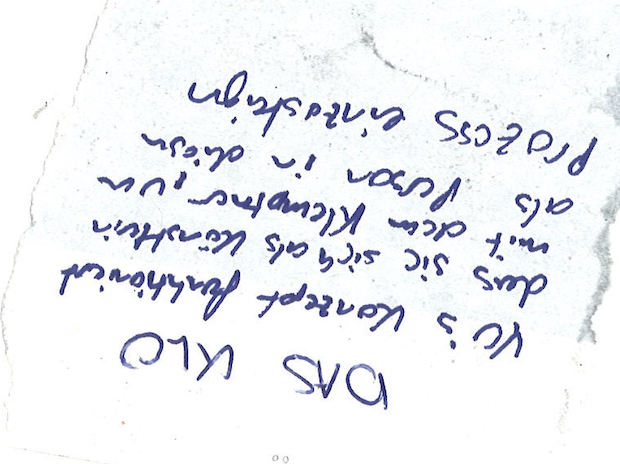 DAS KLO
Konzept funktioniert
dass sie sich als Künstlerin
mit dem Klemptner, um
als Person in diesen
PROZESS einzusteigen